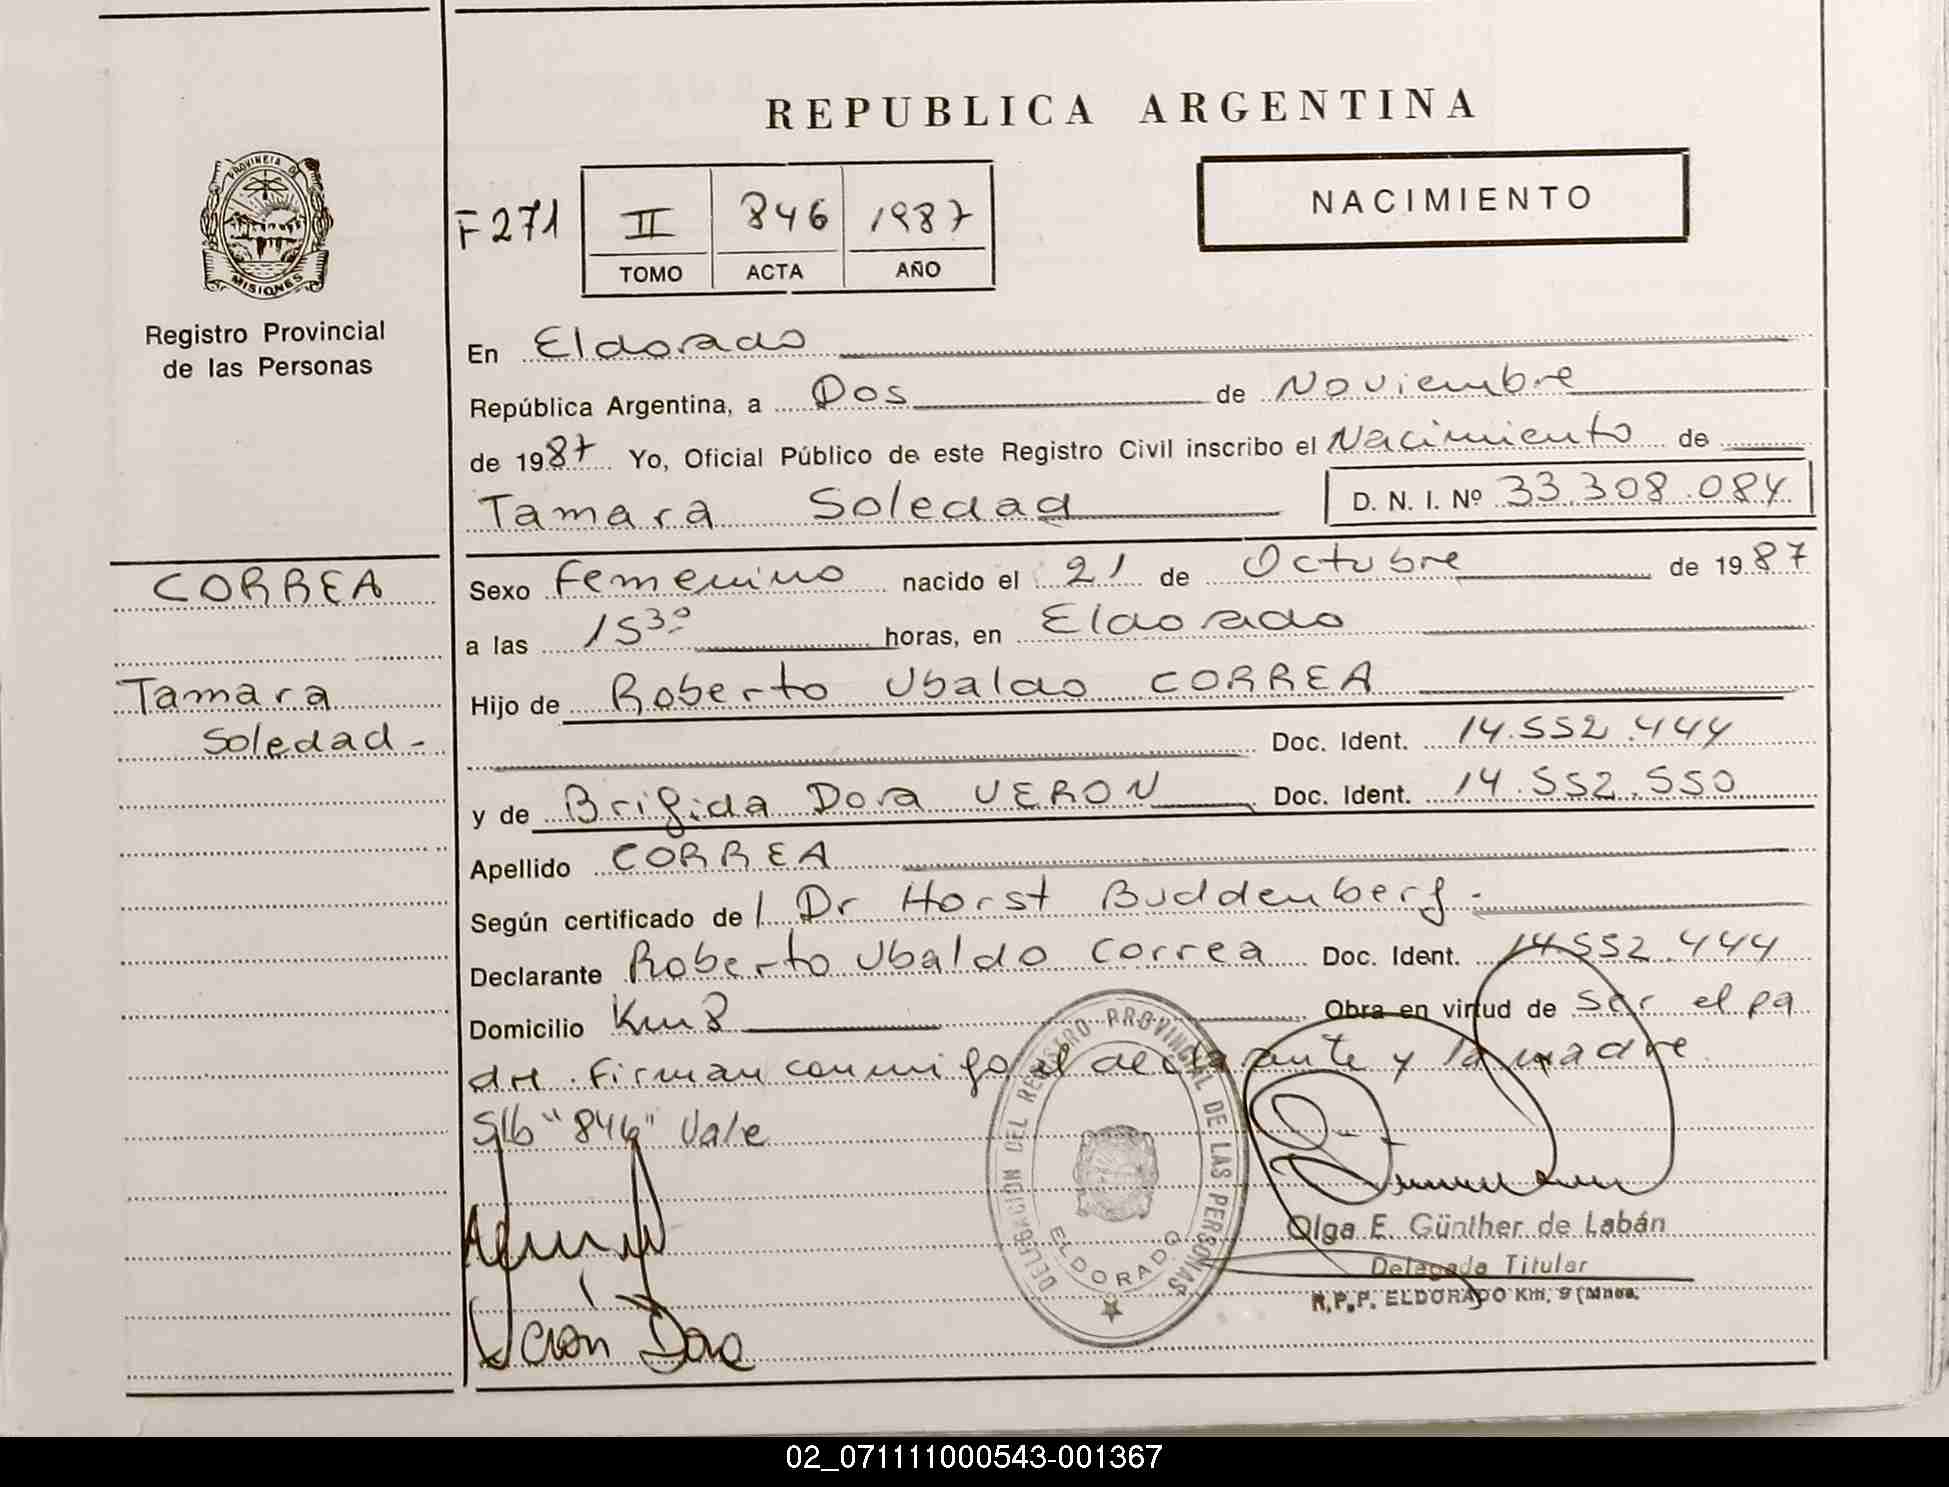 REPUBLICA ARGENTINA
PROVINCIA DE MISIONES
Registro Provincial
de las Personas
F 271
II 846 1987
TOMO ACTA AÑO
NACIMIENTO
En Eldorado
República Argentina, a Dos de Noviembre
de 1987 Yo, Oficial Público de este Registro Civil inscribo el Nacimiento de
Tamara Soledad D. N. I. Nº 33.308.084
CORREA
Tamara
Soledad -
Sexo Femenino nacido el 21 de Octubre de 1987
a las 15³⁰ horas, en Eldorado
Hijo de Roberto Ubaldo CORREA
Doc. Ident. 14.552.444
y de Brigida Dora VERON Doc. Ident. 14.552.550
Apellido CORREA
Según certificado de l Dr Horst Buddenberg.-
Declarante Roberto Ubaldo Correa Doc. Ident. 14552.444
Domicilio Km 8 Obra en virtud de ser el pa
dre. Firman conmigo el declarante y la madre.
S/b "846" Vale
DELEGACION DEL REGISTRO PROVINCIAL DE LAS PERSONAS
ELDORADO
Olga E. Günther de Labán
Delegada Titular
R.P.P. ELDORADO Km. 9 (Mnes.
Veron Dora
02_071111000543-001367